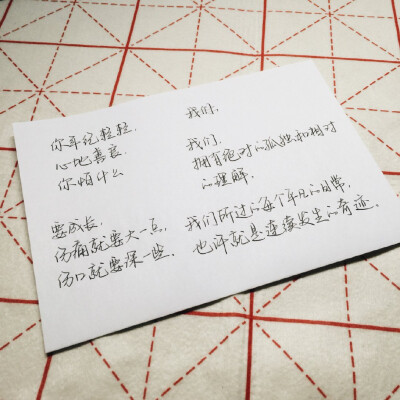 你年纪轻轻.
心地善良
你怕什么
要成长.
伤痛就要大一点,
伤口就要深一些.
我们.
我们.
拥有绝对的孤独和相对
的理解.
我们所过的每个平凡的日常,
也许就是连续发生的奇迹.